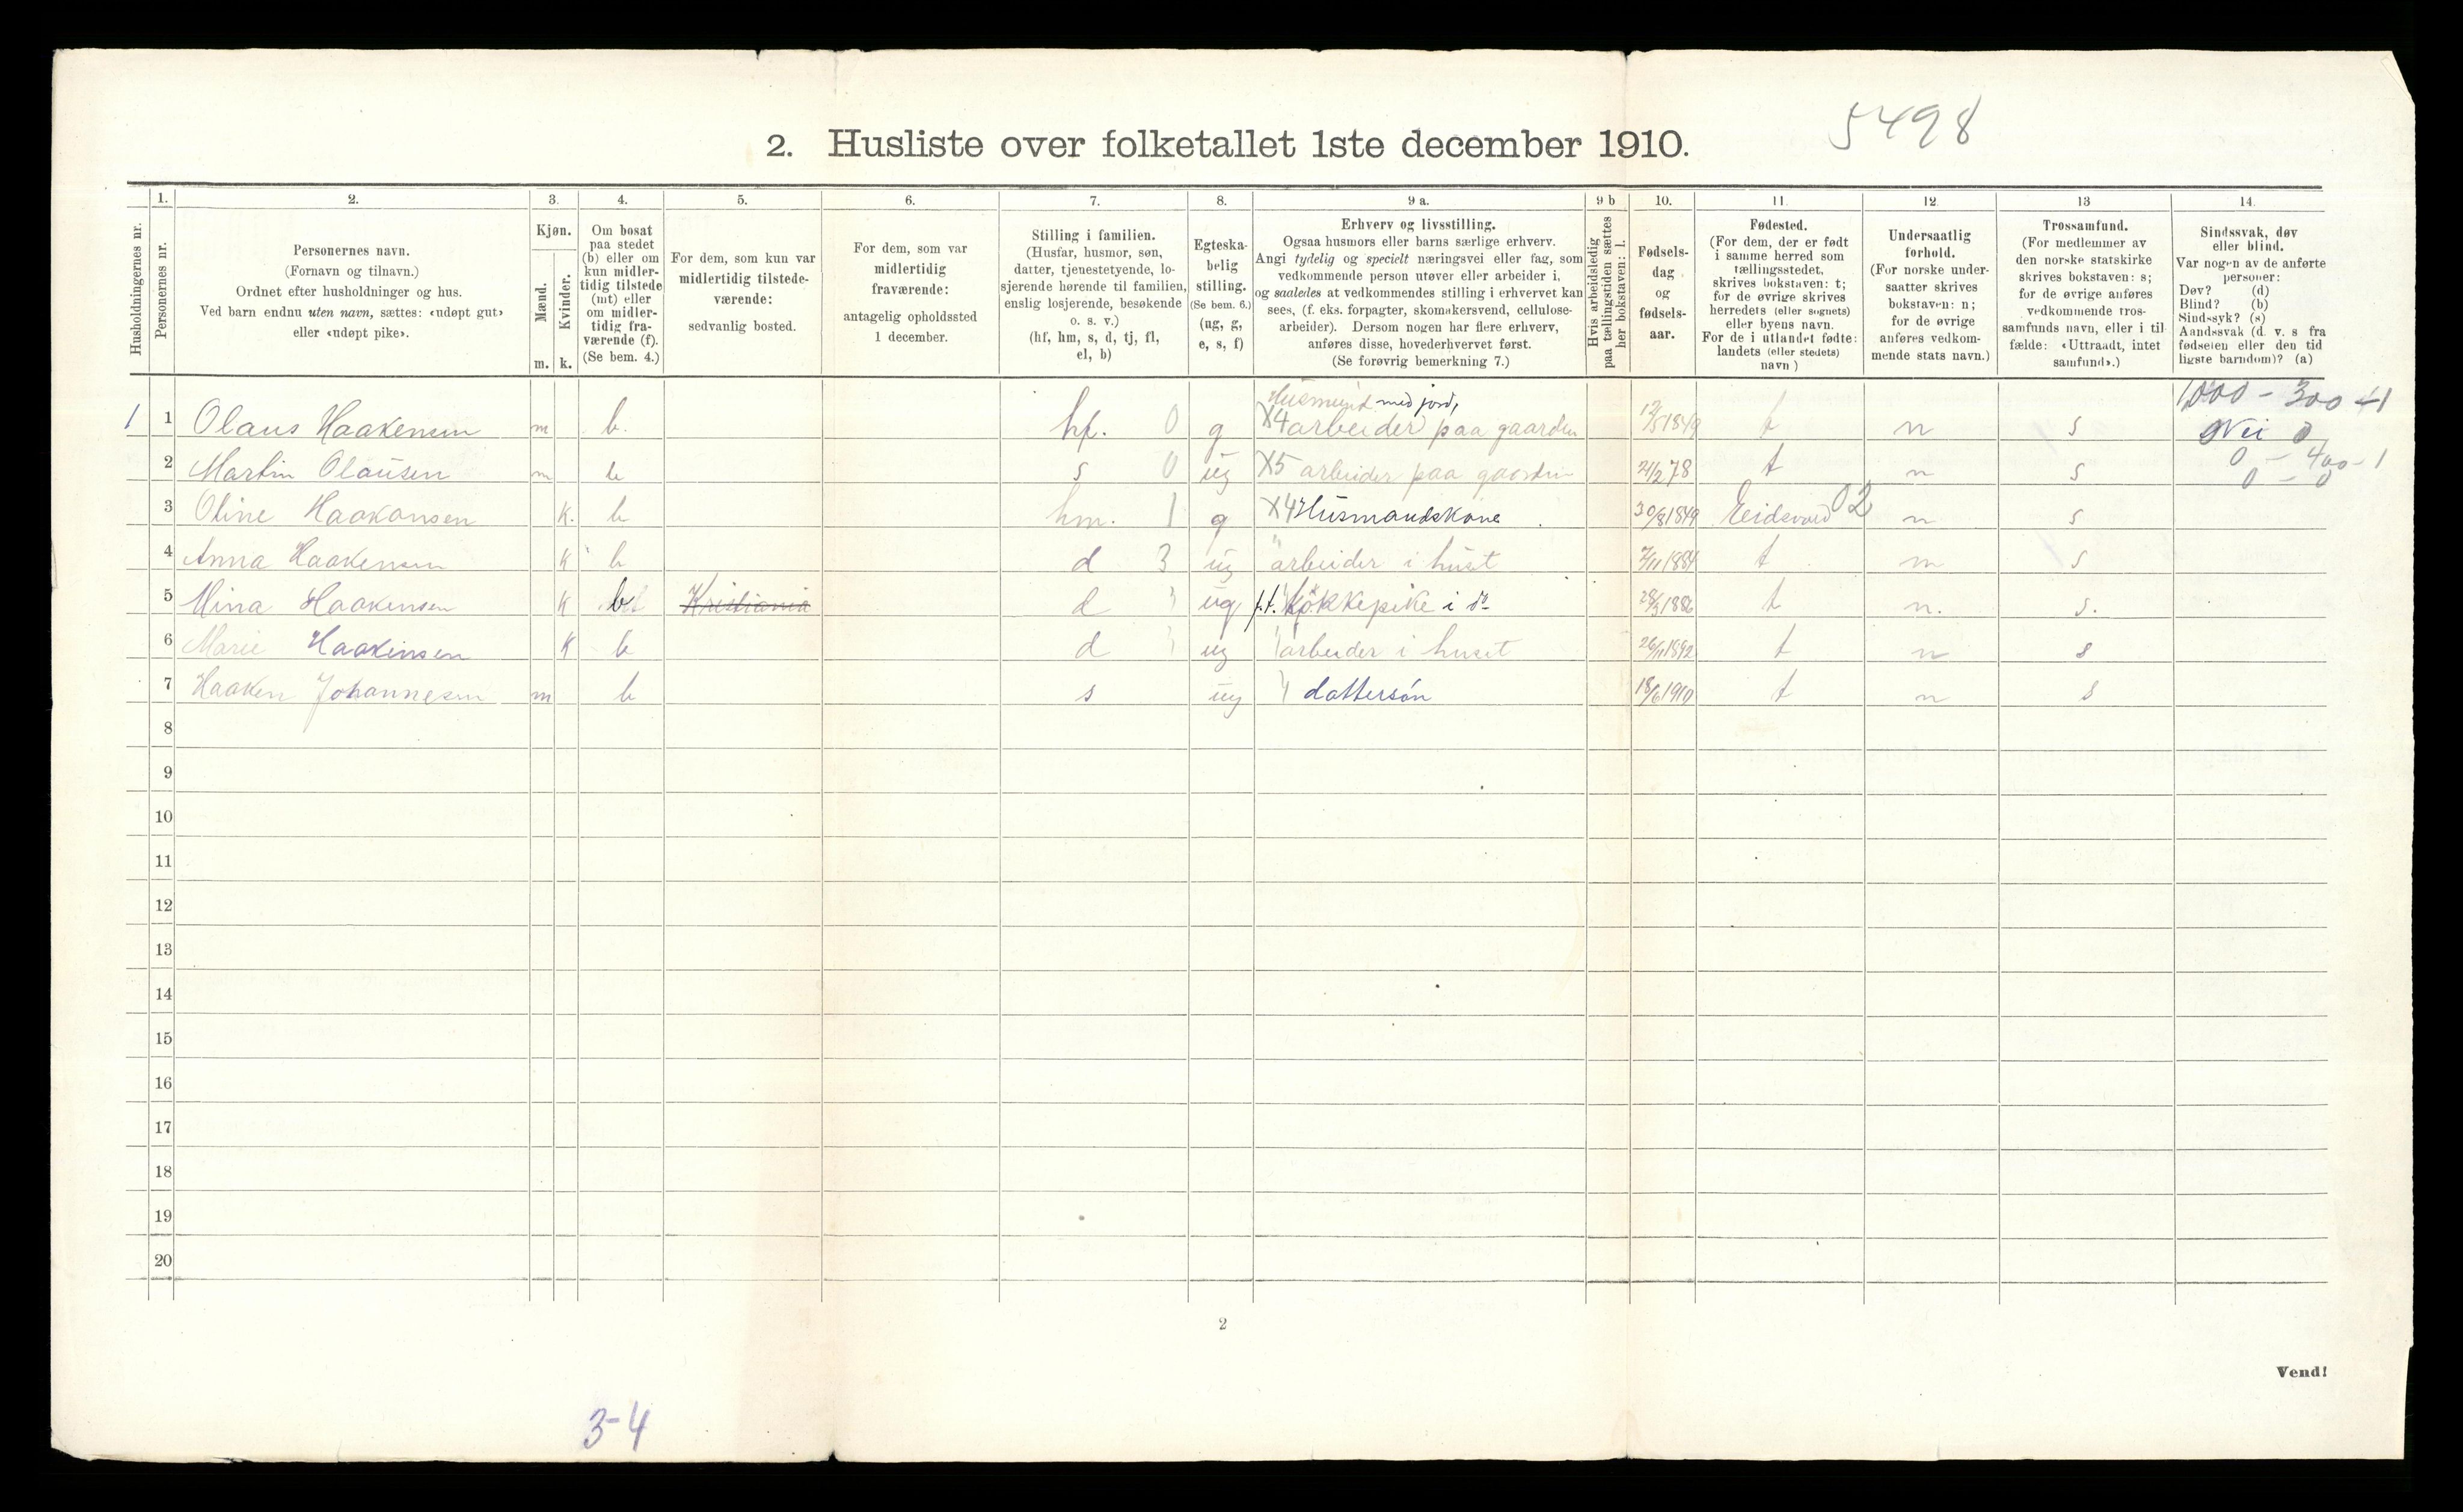 5498
2. Husliste over folketallet 1ste december 1910.
Husholdningernes nr.
1.
Personernes nr.
2.
Personernes navn.
(Fornavn og tilnavn.)
Ordnet efter husholdninger og hus.
Ved barn endnu uten navn, sættes: «udøpt gut»
eller «udøpt pike».
3.
Kjøn.
Mænd.
m.
Kvinder.
k.
4.
Om bosat
paa stedet
(b) eller om
kun midler-
tidig tilstede
(mt) eller
om midler-
tidig fra-
værende (f).
(Se bem. 4.)
5.
For dem, som kun var
midlertidig tilstede-
værende:
sedvanlig bosted.
6.
For dem, som var
midlertidig
fraværende:
antagelig opholdssted
1 december.
7.
Stilling i familien.
(Husfar, husmor, søn,
datter, tjenestetyende, lo-
sjerende hørende til familien,
enslig losjerende, besøkende
o. s. v.)
(hf, hm, s, d, tj, fl,
el, b)
8.
Egteska-
belig
stilling.
(Se bem. 6.)
(ug, g,
e, s, f)
9 a.
Erhverv og livsstilling.
Ogsaa husmors eller barns særlige erhverv.
Angi tydelig og specielt næringsvei eller fag, som
vedkommende person utøver eller arbeider i,
og saaledes at vedkommendes stilling i erhvervet kan
sees, (f. eks. forpagter, skomakersvend, cellulose-
arbeider). Dersom nogen har flere erhverv,
anføres disse, hovederhvervet først.
(Se forøvrig bemerkning 7.)
9 b
Hvis arbeidsledig
paa tællingstiden sættes
her bokstaven: l.
10.
Fødsels-
dag
og
fødsels-
aar.
11.
Fødested.
(For dem, der er født
i samme herred som
tællingsstedet,
skrives bokstaven: t;
for de øvrige skrives
herredets (eller sognets)
eller byens navn.
For de i utlandet fødte:
landets (eller stedets)
navn )
12.
Undersaatlig
forhold.
(For norske under-
saatter skrives
bokstaven: n;
for de øvrige
anføres vedkom-
mende stats navn.)
13
Trossamfund.
(For medlemmer av
den norske statskirke
skrives bokstaven: s;
for de øvrige anføres
vedkommende tros-
samfunds navn, eller i til
fælde: «Uttraadt, intet
samfund».)
14.
Sindssvak, døv
eller blind.
Var nogen av de anførte
personer:
Døv? (d)
Blind? (b)
Sindssyk? (s)
Aandssvak (d. v. s fra
fødselen eller den tid
ligste barndom)? (a)
Husmand med jord, 1,000 - 300 - 1
1 1 Olaus Haakensen m b. hf. 0 g X4 arbeider paa gaarden 12/5 1849 t n s Nei 0
2 Martin Olausen m b s 0 ug X5 arbeider paa gaarden 21/2 78 t n s 0 - 400 - 1
0 - 0
3 Oline Haakansen k. b hm. 1 g X4 Husmandskone 30/8 1849 Eidsvold 02 n s
4 Anna Haakensen k b d 3 ug " arbeider i huset 7/11 1884 t n s
5 Mina Haakensen k b Kristiania d ug p.t. kokkepike i do 28/3 1886 t n. s.
6 Marie Haakinsen k b d ug arbeider i huset 26/11 1892 t n s
7 Haaken Johannesen m b s ug dattersøn 18/6 1910 t n s
8
9
10
11
12
13
14
15
16
17
18
19
20
2
Vend!
3-4